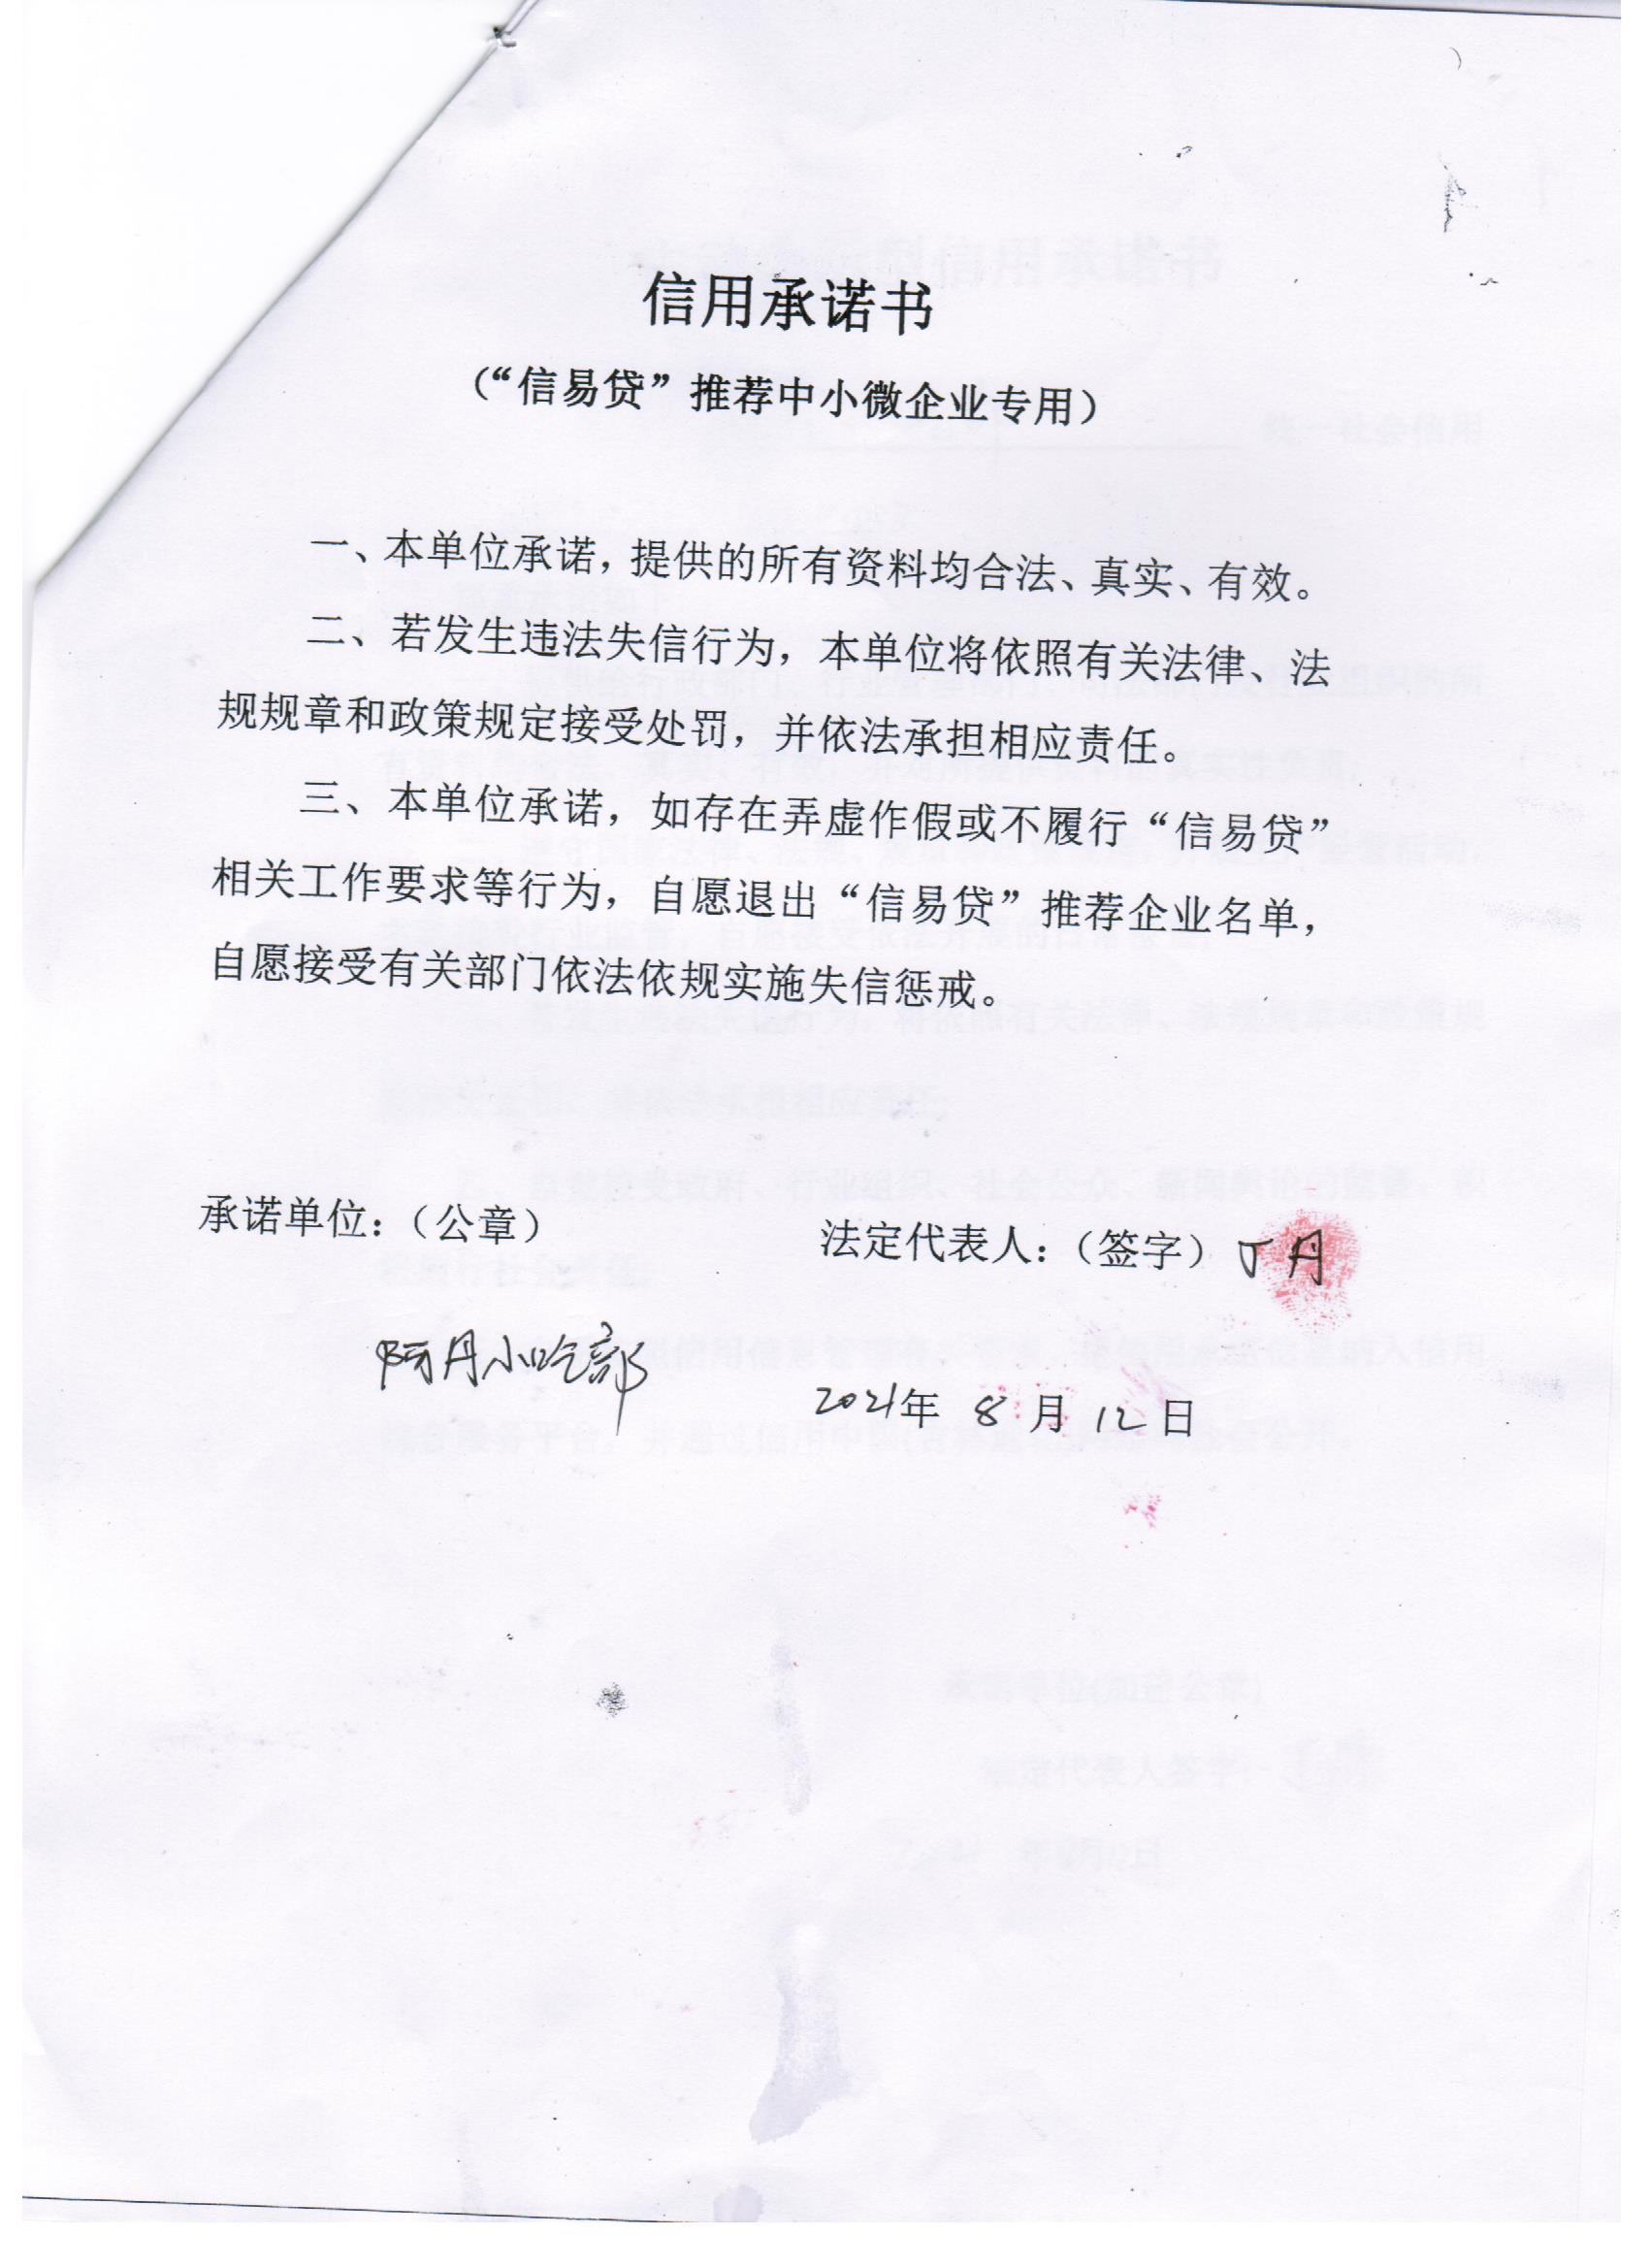 信用承诺书
（“信易贷”推荐中小微企业专用）
一、本单位承诺，提供的所有资料均合法、真实、有效。
二、若发生违法失信行为，本单位将依照有关法律、法
规规章和政策规定接受处罚，并依法承担相应责任。
三、本单位承诺，如存在弄虚作假或不履行“信易贷”
相关工作要求等行为，自愿退出“信易贷”推荐企业名单，
自愿接受有关部门依法依规实施失信惩戒。
承诺单位：（公章） 法定代表人：（签字）丁丹
阿丹小吃部
2021年 8 月 12 日